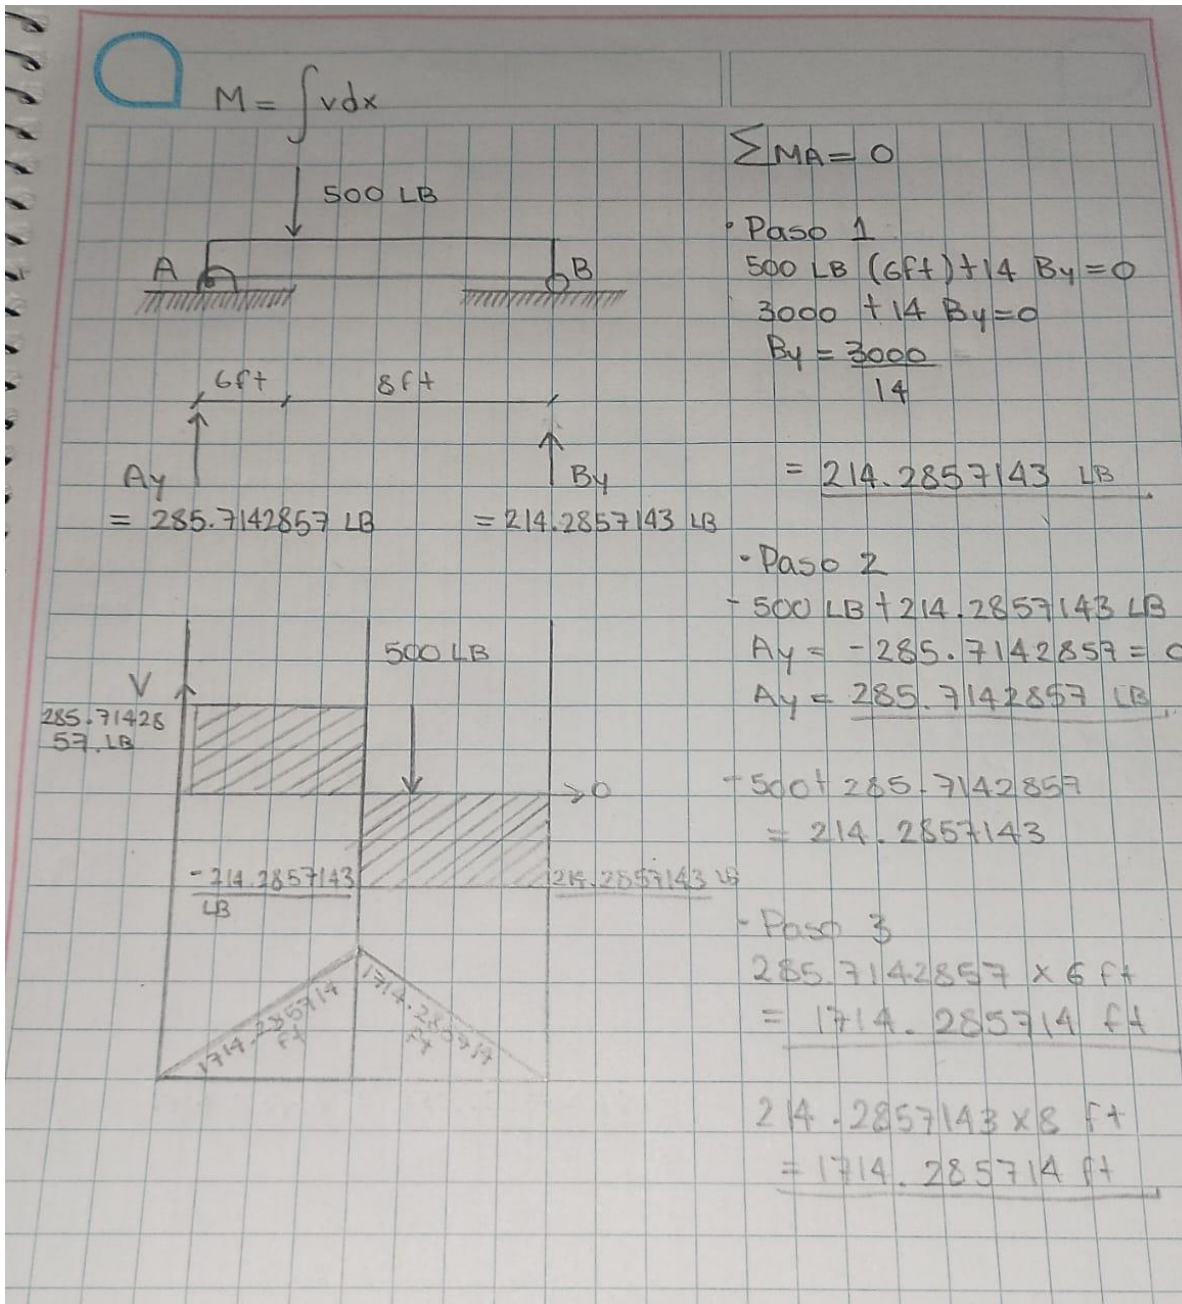 M = ∫vdx
500 LB
A
B
6ft
8ft
Ay
= 285.7142857 LB
By
= 214.2857143 LB
500 LB
V
285.71428
57.LB
>0
-214.2857143
LB
214.2857143 LB
1714.285714
ft
1714.285714
ft
ΣMA = 0
· Paso 1
500 LB (6ft) + 14 By = 0
3000 + 14 By = 0
By = 3000
14
= 214.2857143 LB
- Paso 2
- 500 LB + 214.2857143 LB
Ay = -285.7142857 = 0
Ay = 285.7142857 LB
-500 + 285.7142857
= 214.2857143
- Paso 3
285.7142857 x 6 ft
= 1714.285714 ft
214.2857143 x 8 ft
= 1714.285714 ft